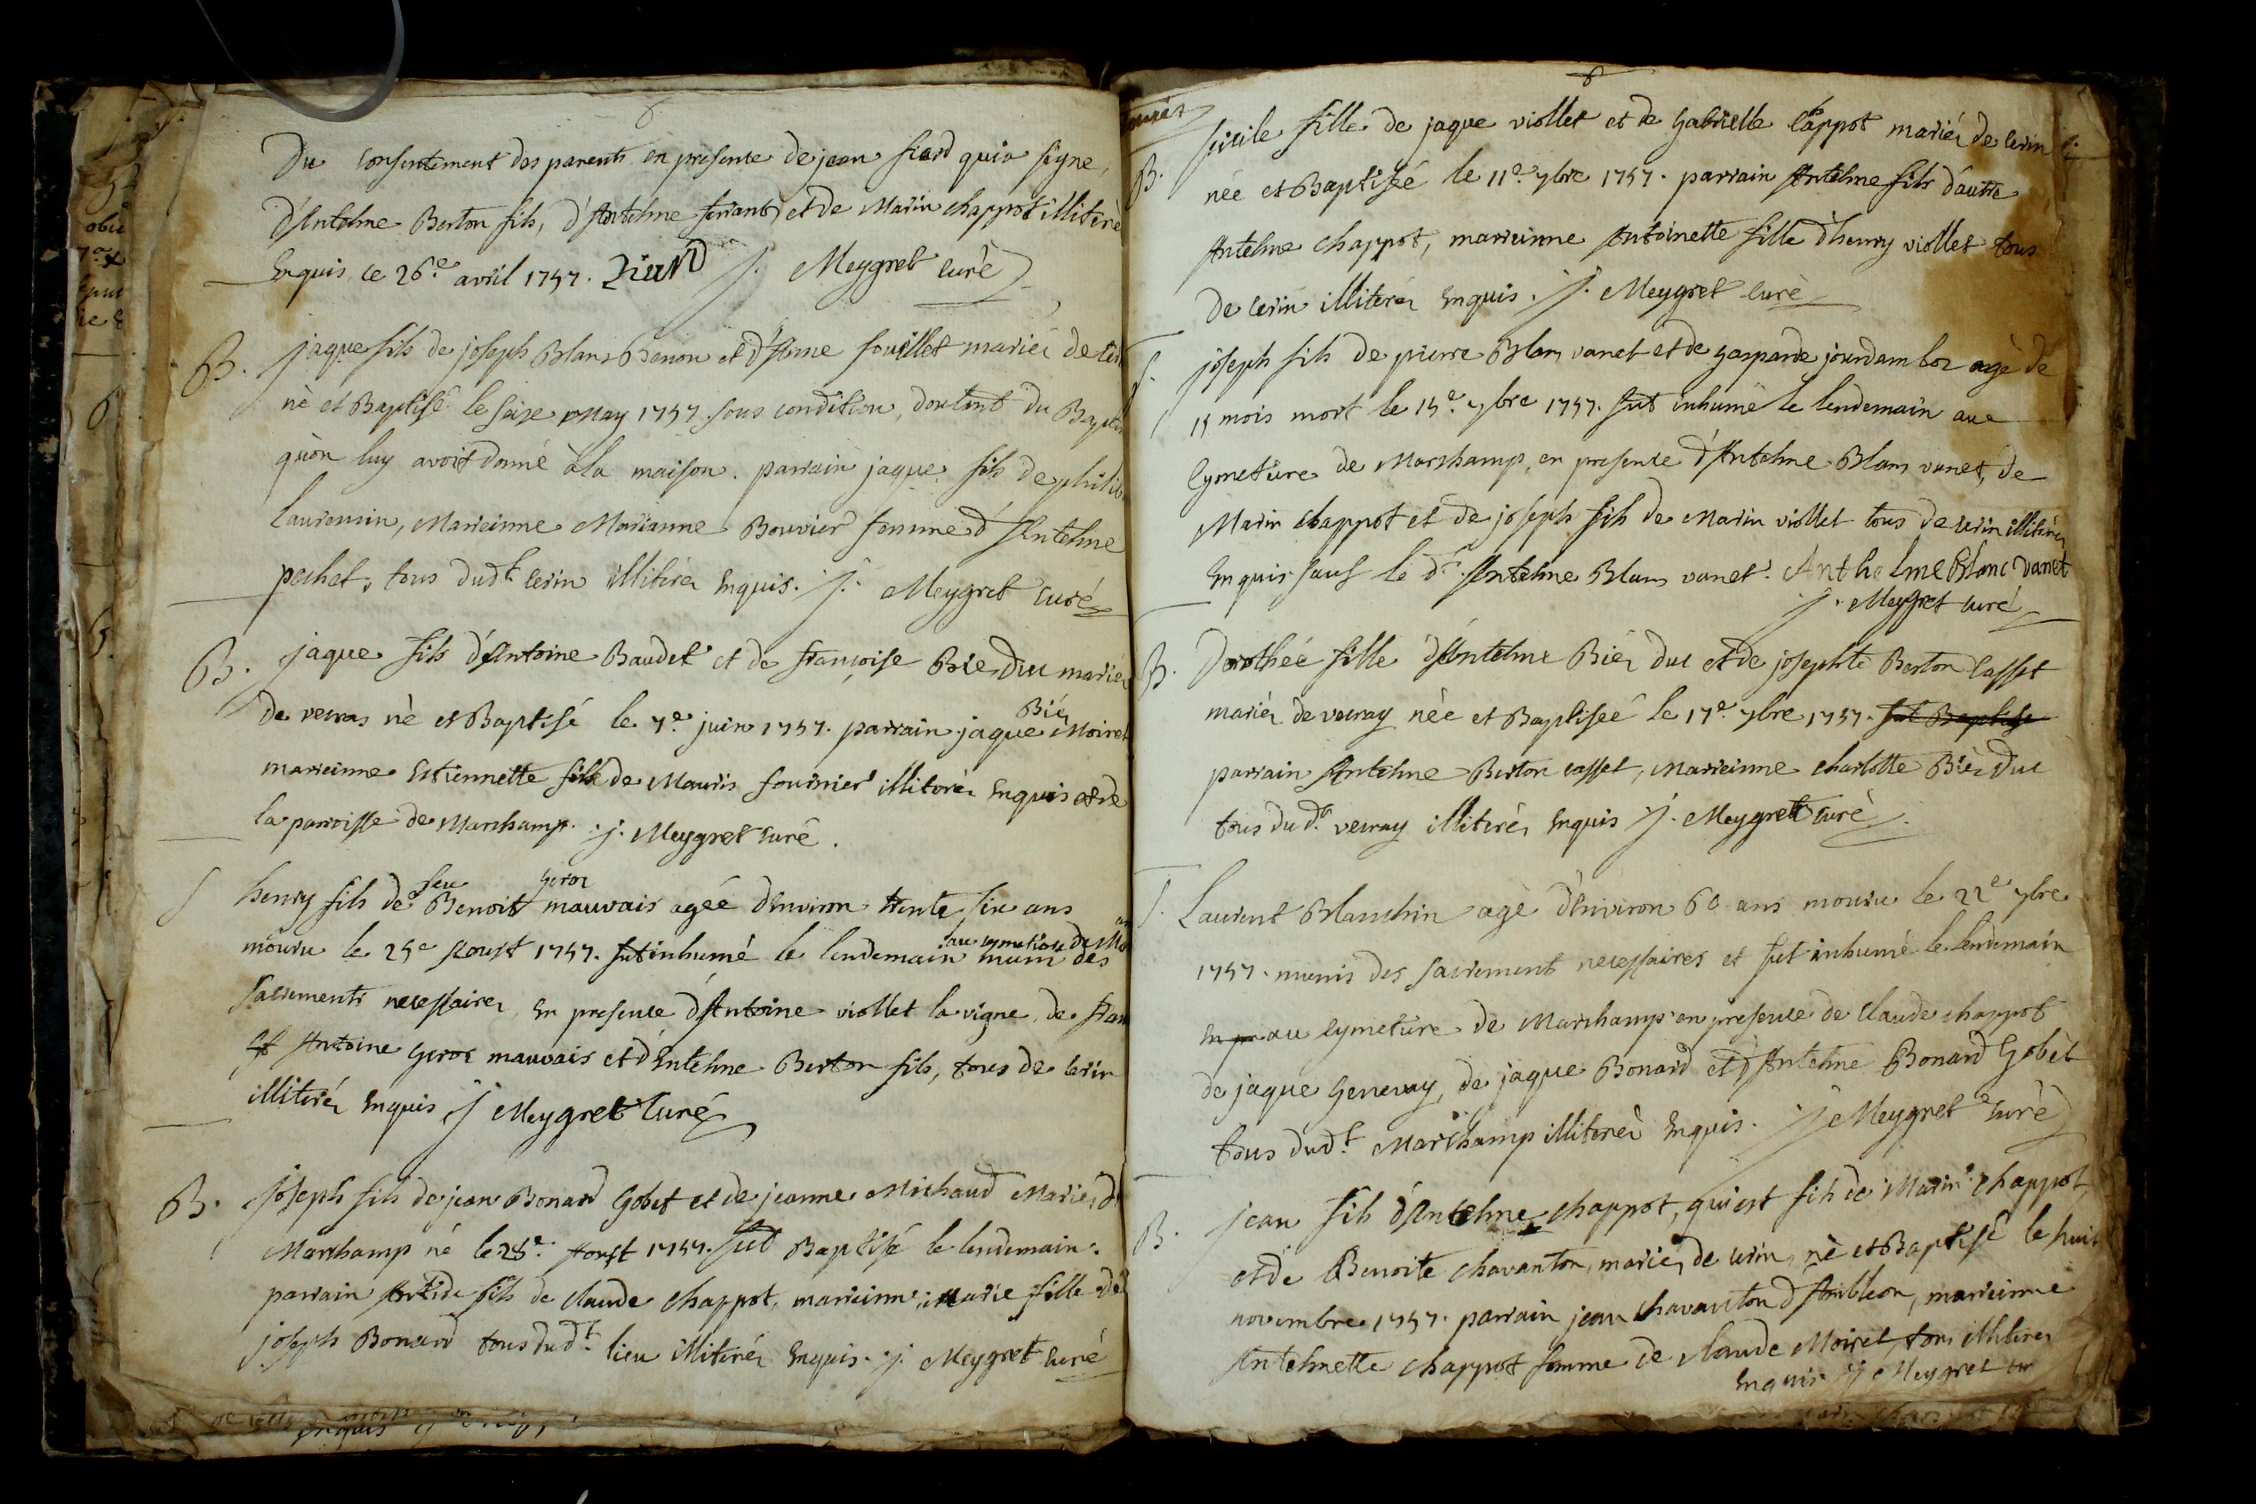 6
Du consentement des parents en presence de jean fiard qui a signe,
d'Antelme Berton fils, d'Antelme ferrant et de Marin chappot illiterés
Enquis, ce 26e avril 1757. Fiard J. Meygret curé
B. jaque fils de joseph Blanc Benon et d'Anne fouillet mariés de Cerin
né et Baptisé le seise may 1757. sous condition, doutant du Baptême
qu'on luy avoit donné à la maison. parrain jaque fils de
Laurencin, Marreinne Marianne Bouvier femme d'Antelme
pechet, tous dudt. Cerin illiterés Enquis. J. Meygret curé
B. jaque fils d'Antoine Baudet et de françoise Bié Duc mariés
de veiras né et Baptisé le 7e. juin 1757. parrain jaque Bié Moiret
marreinne Estiennette fille de Mauris fournier illiterés Enquis et de
la parroisse de Marchamp. J. Meygret curé.
S henry fils de feu Benoit Geros mauvais agée d'Environ trente six ans
mouru le 25e Aoust 1757. fut inhumé le lendemain au cymetiere de Mar muni des
sacrements necessaires, En presence d'Antoine viollet la vigne, de
Antoine Geros mauvais et d'Entelme Berton fils, tous de Cerin
illiterés Enquis J Meygret Curé
B. joseph fils de jean Bonard Gobet et de jeanne Michaud Mariés de
Marchamp né le 28e. Aoust 1757. fut Baptisé le lendemain.
parrain Antide fils de Claude Chappot, marreinne Marie fille de
joseph Bonard tous dudt. lieu illiterés Enquis. J. Meygret curé
8
B. sicile fille de jaque viollet et de Gabrielle Chappot mariés de Cerin
née et Baptisée le 11e. 7bre 1757. parrain Antelme fils d'autre
Antelme Chappot, marreinne Antoinette fille d'henry viollet tous
de Cerin illiterés Enquis. J. Meygret Curé
S. joseph fils de pierre Blanc vanet et de Gasparde jourdam agé de
15 mois mort le 15e. 7bre 1757. fut inhumé le lendemain au
Cymetiere de Marchamp, en presence d'Antelme Blanc vanet, de
Marin Chappot et de joseph fils de Marin viollet tous de Cerin illiterés
Enquis sauf le dt. Antelme Blanc vanet. Anthelme Blanc vanet
J. Meygret curé
B. Dorothée fille d'Antelme Bié Duc et de josephte Berton Casset
mariés de veiray née et Baptisée le 17e. 7bre 1757. fut Baptisé
parrain Antelme Berton casset, Marreinne charlotte Bié Duc
tous du dt. veiray illiterés Enquis J. Meygret curé
S. Laurent Blanchin agé d'Environ 60 ans mouru le 22e 7bre
1757. munis des sacrement necessaires et fut inhumé le lendemain
En pr au Cymetiere de Marchamp en presence de Claude Chappot
de jaque Genevay, de jaque Bonard et d'Antelme Bonard Gobet
tous dudt. Marchamp illiterés Enquis. J. Meygret Curé
B. jean fils d'Antelme Chappot, qui est fils de Marin Chappot,
et de Benoite Chavanton, mariés de Cerin, né et Baptisé le huit
novembre 1757. parrain jean Chavanton d'Ambleon, marreinne
Antelmette Chappot femme de Claude Moiret, tous illiterés
Enquis J Meygret cu